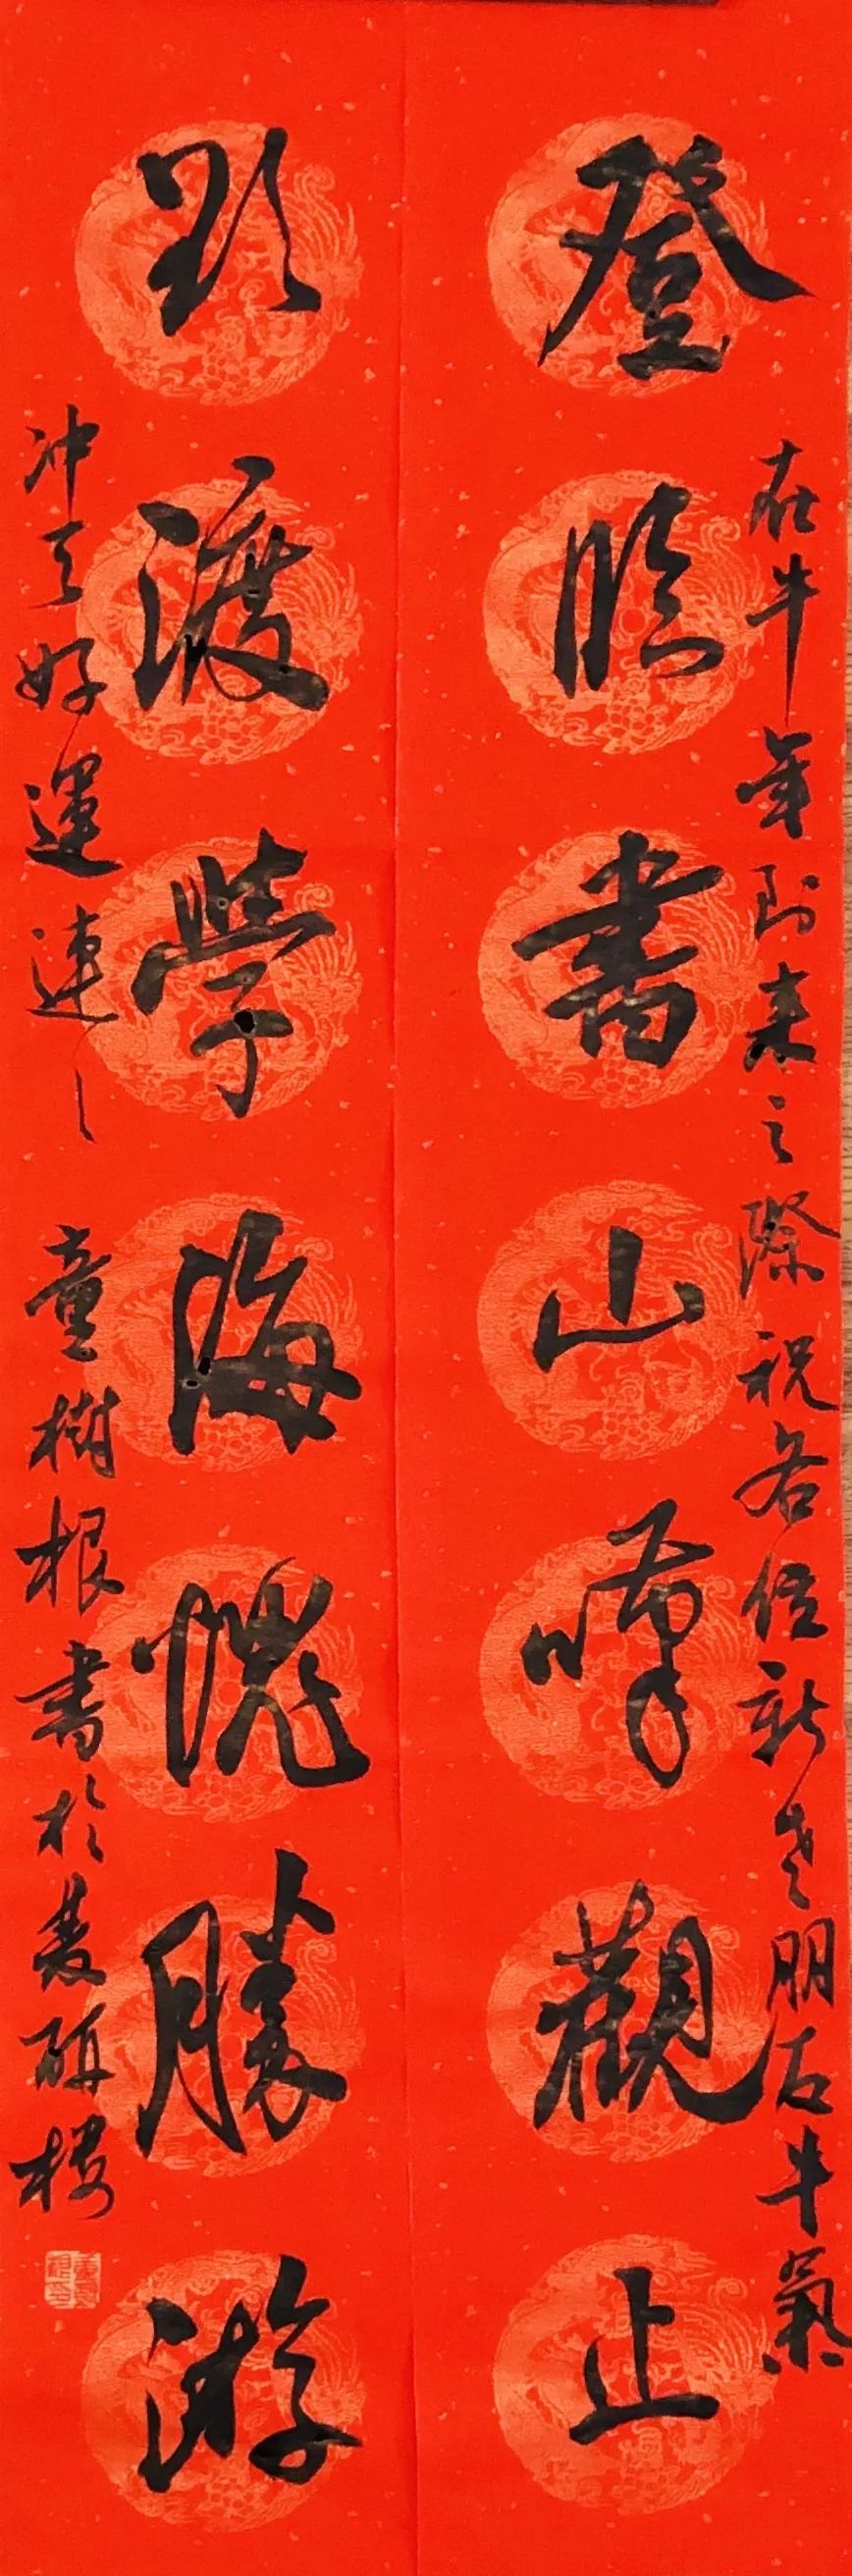 在牛年到來之際祝各位新老朋友牛氣
登臨書山嘆觀止
渡學海愧勝游
冲天好運連連 童樹根書於樓